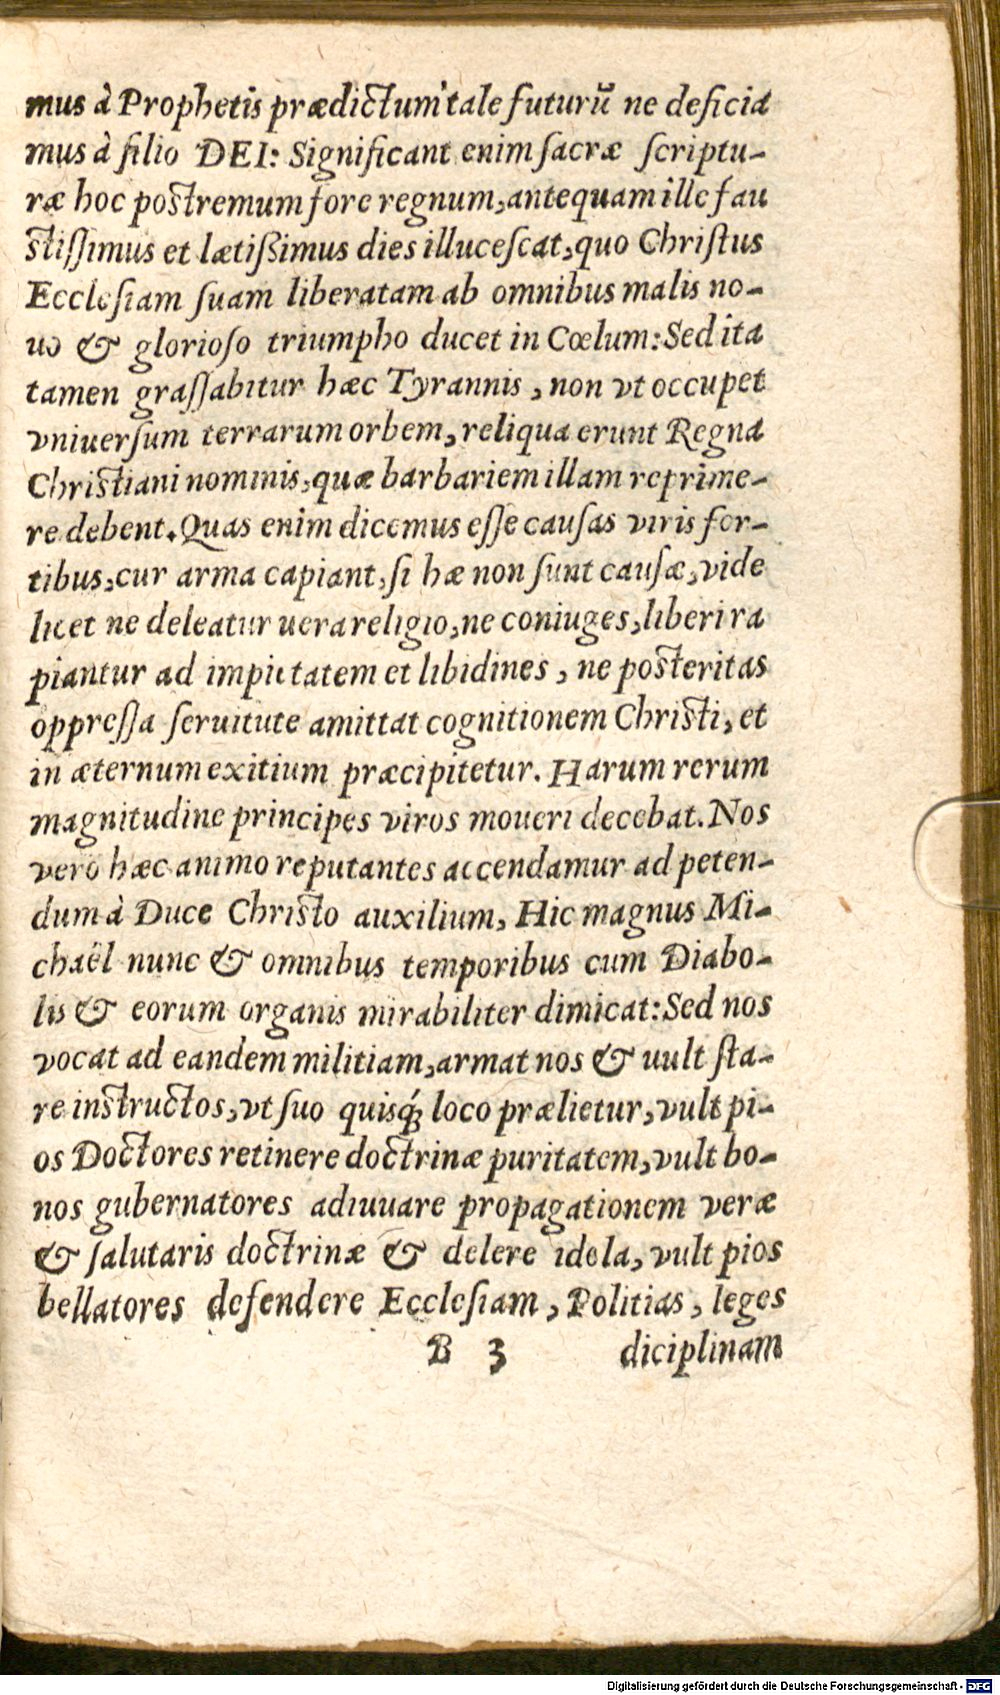 mus à Prophetis prædictum tale futurũ ne deficia
mus à filio DEI: Significant enim ſacræ ſcriptu-
ræ hoc postremum fore regnum, antequam ille fau
stiſſimus et lætißimus dies illuceſcat, quo Chriſtus
Eccleſiam ſuam liberatam ab omnibus malis no-
uo & glorioſo triumpho ducet in Cœlum: Sed ita
tamen graſſabitur hæc Tyrannis, non vt occupet
vniuerſum terrarum orbem, reliqua erunt Regna
Christiani nominis, quæ barbariem illam reprime-
re debent. Quas enim dicemus eſſe cauſas viris for-
tibus, cur arma capiant, ſi hæ non ſunt cauſæ, vide
licet ne deleatur uera religio, ne coniuges, liberi ra
piantur ad impietatem et libidines, ne posteritas
oppreſſa ſeruitute amittat cognitionem Christi, et
in æternum exitium præcipitetur. Harum rerum
magnitudine principes viros moueri decebat. Nos
vero hæc animo reputantes accendamur ad peten-
dum à Duce Christo auxilium, Hic magnus Mi-
chaël nunc & omnibus temporibus cum Diabo-
lis & eorum organis mirabiliter dimicat: Sed nos
vocat ad eandem militiam, armat nos & uult ſta-
re instructos, vt ſuo quisq́; loco prælietur, vult pi-
os Doctores retinere doctrinæ puritatem, vult bo-
nos gubernatores adiuuare propagationem veræ
& ſalutaris doctrinæ & delere idola, vult pios
bellatores defendere Eccleſiam, Politias, leges
B 3 diciplinam
Digitalisierung gefördert durch die Deutsche Forschungsgemeinschaft - DFG